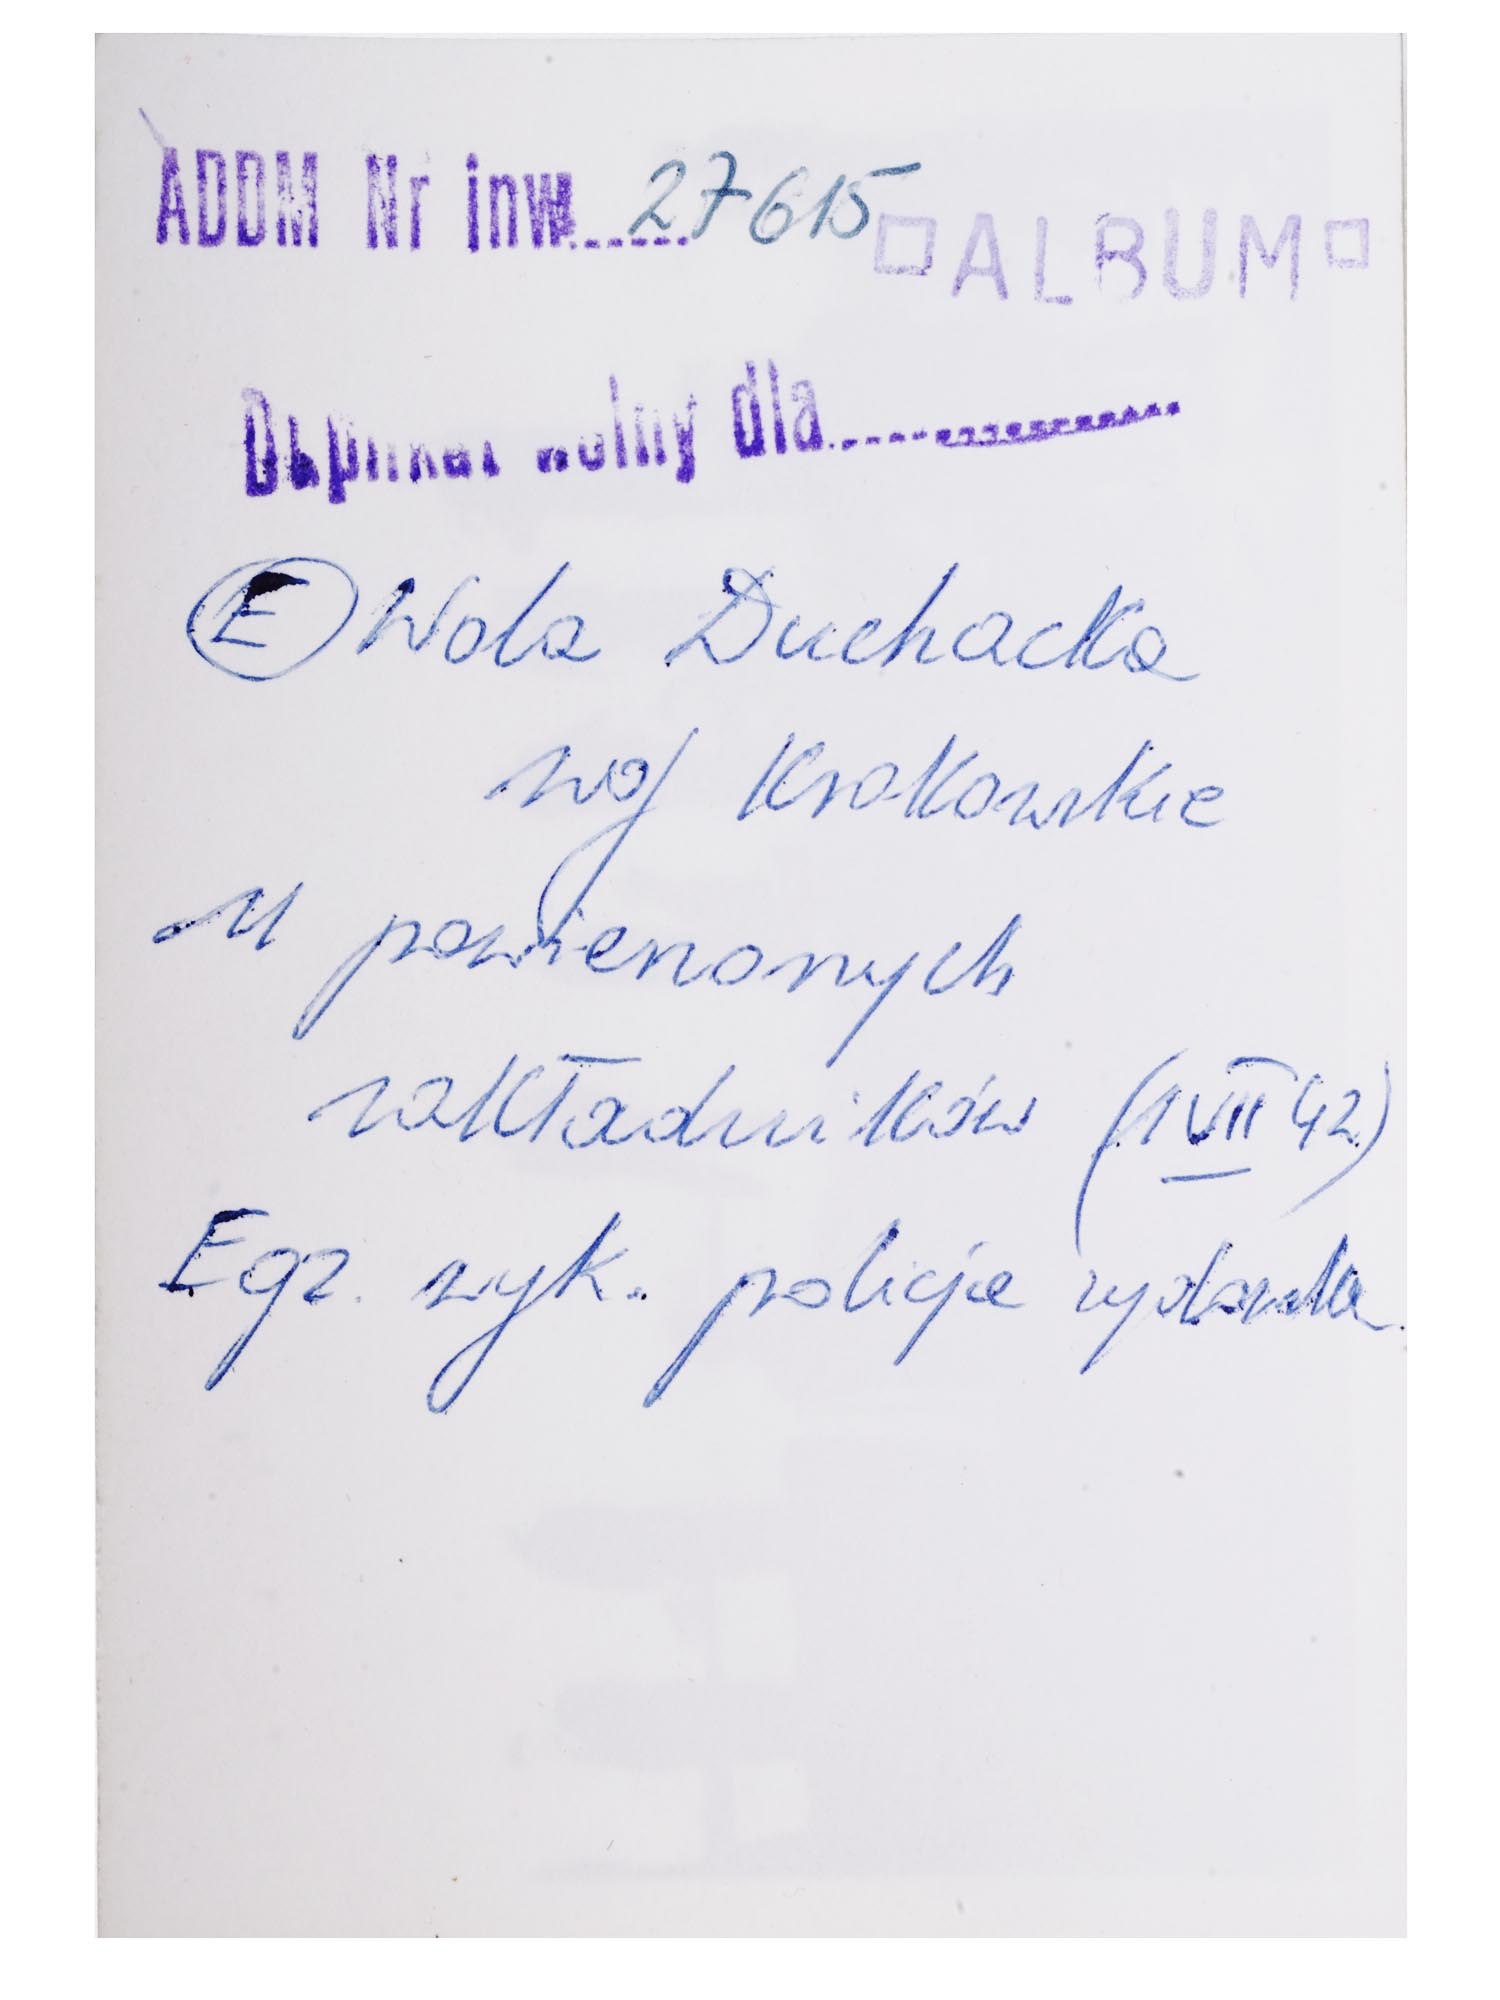 ADDM Nr inw...... 27615
□ ALBUM □
Duplikat wolny dla....................
Ⓔ Wola Duchacka
woj Krakowskie
11 powieszonych
zakładników (1 VII 42)
Egz. wyk. policja żydowska.